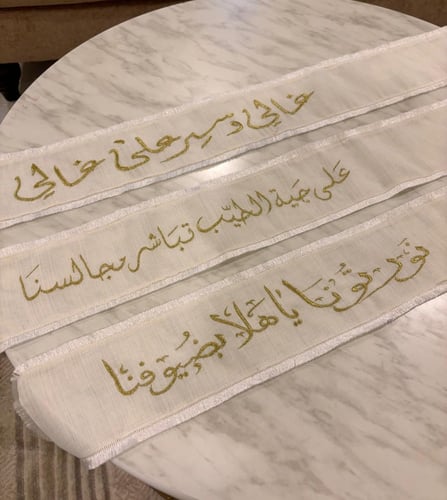 غالي وسير على غالي
عَلى جَية الطيّب تبَاشر مجالسنَا
نوَرتُونا يا هَلا بضيُوفنا